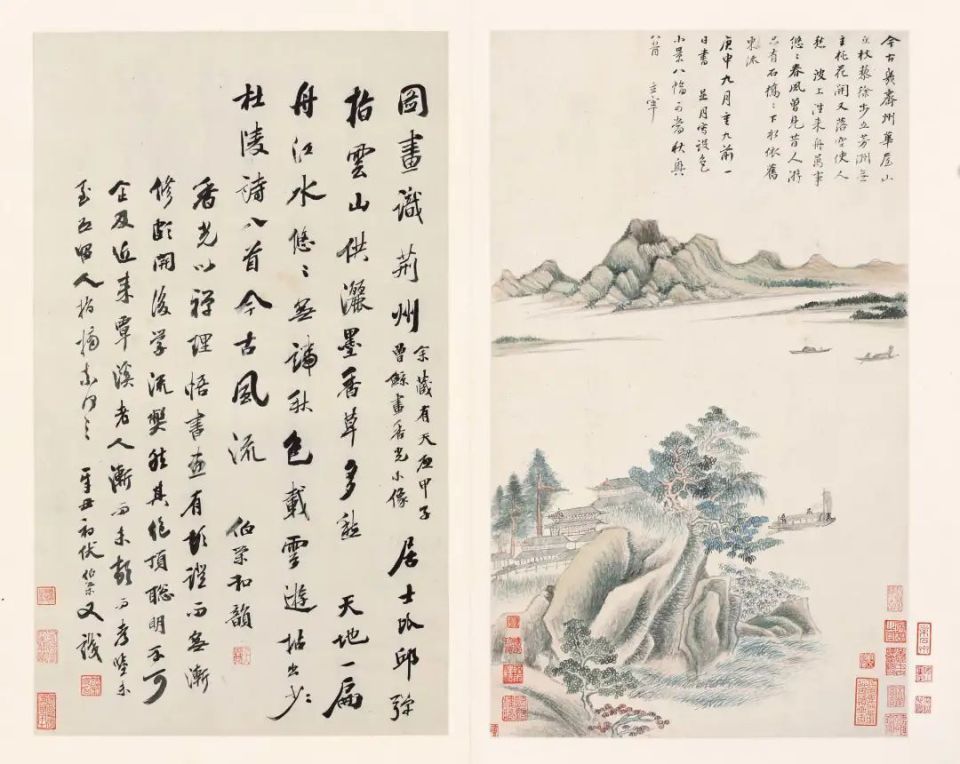 今古幾齊州華屋山
丘杖藜徐步立芳洲無
主桃花開又落空使人
愁 波上往來舟萬事
悠〻春風曾見昔人游
只有石橋〻下水依舊
東流
庚申九月重九前一
日書 是月寫設色
小景八幅可當秋興
八首 玄宰
圖畫識荊州
余藏有天啟甲子
曾鯨畫香光小像
居士 邱
拾雲山供灑墨香草多愁 天地一扁
舟江水悠〻無端秋色載雲遊拈出少〻
杜陵詩八首今古風流 伯榮和韻
香光以禪理悟書畫有頓證而無漸
修頗開後學流弊然其絕頂聰明不可
企及近來覃溪老人漸而未頓而考鑒亦
人指摘
辛丑初伏伯榮又識